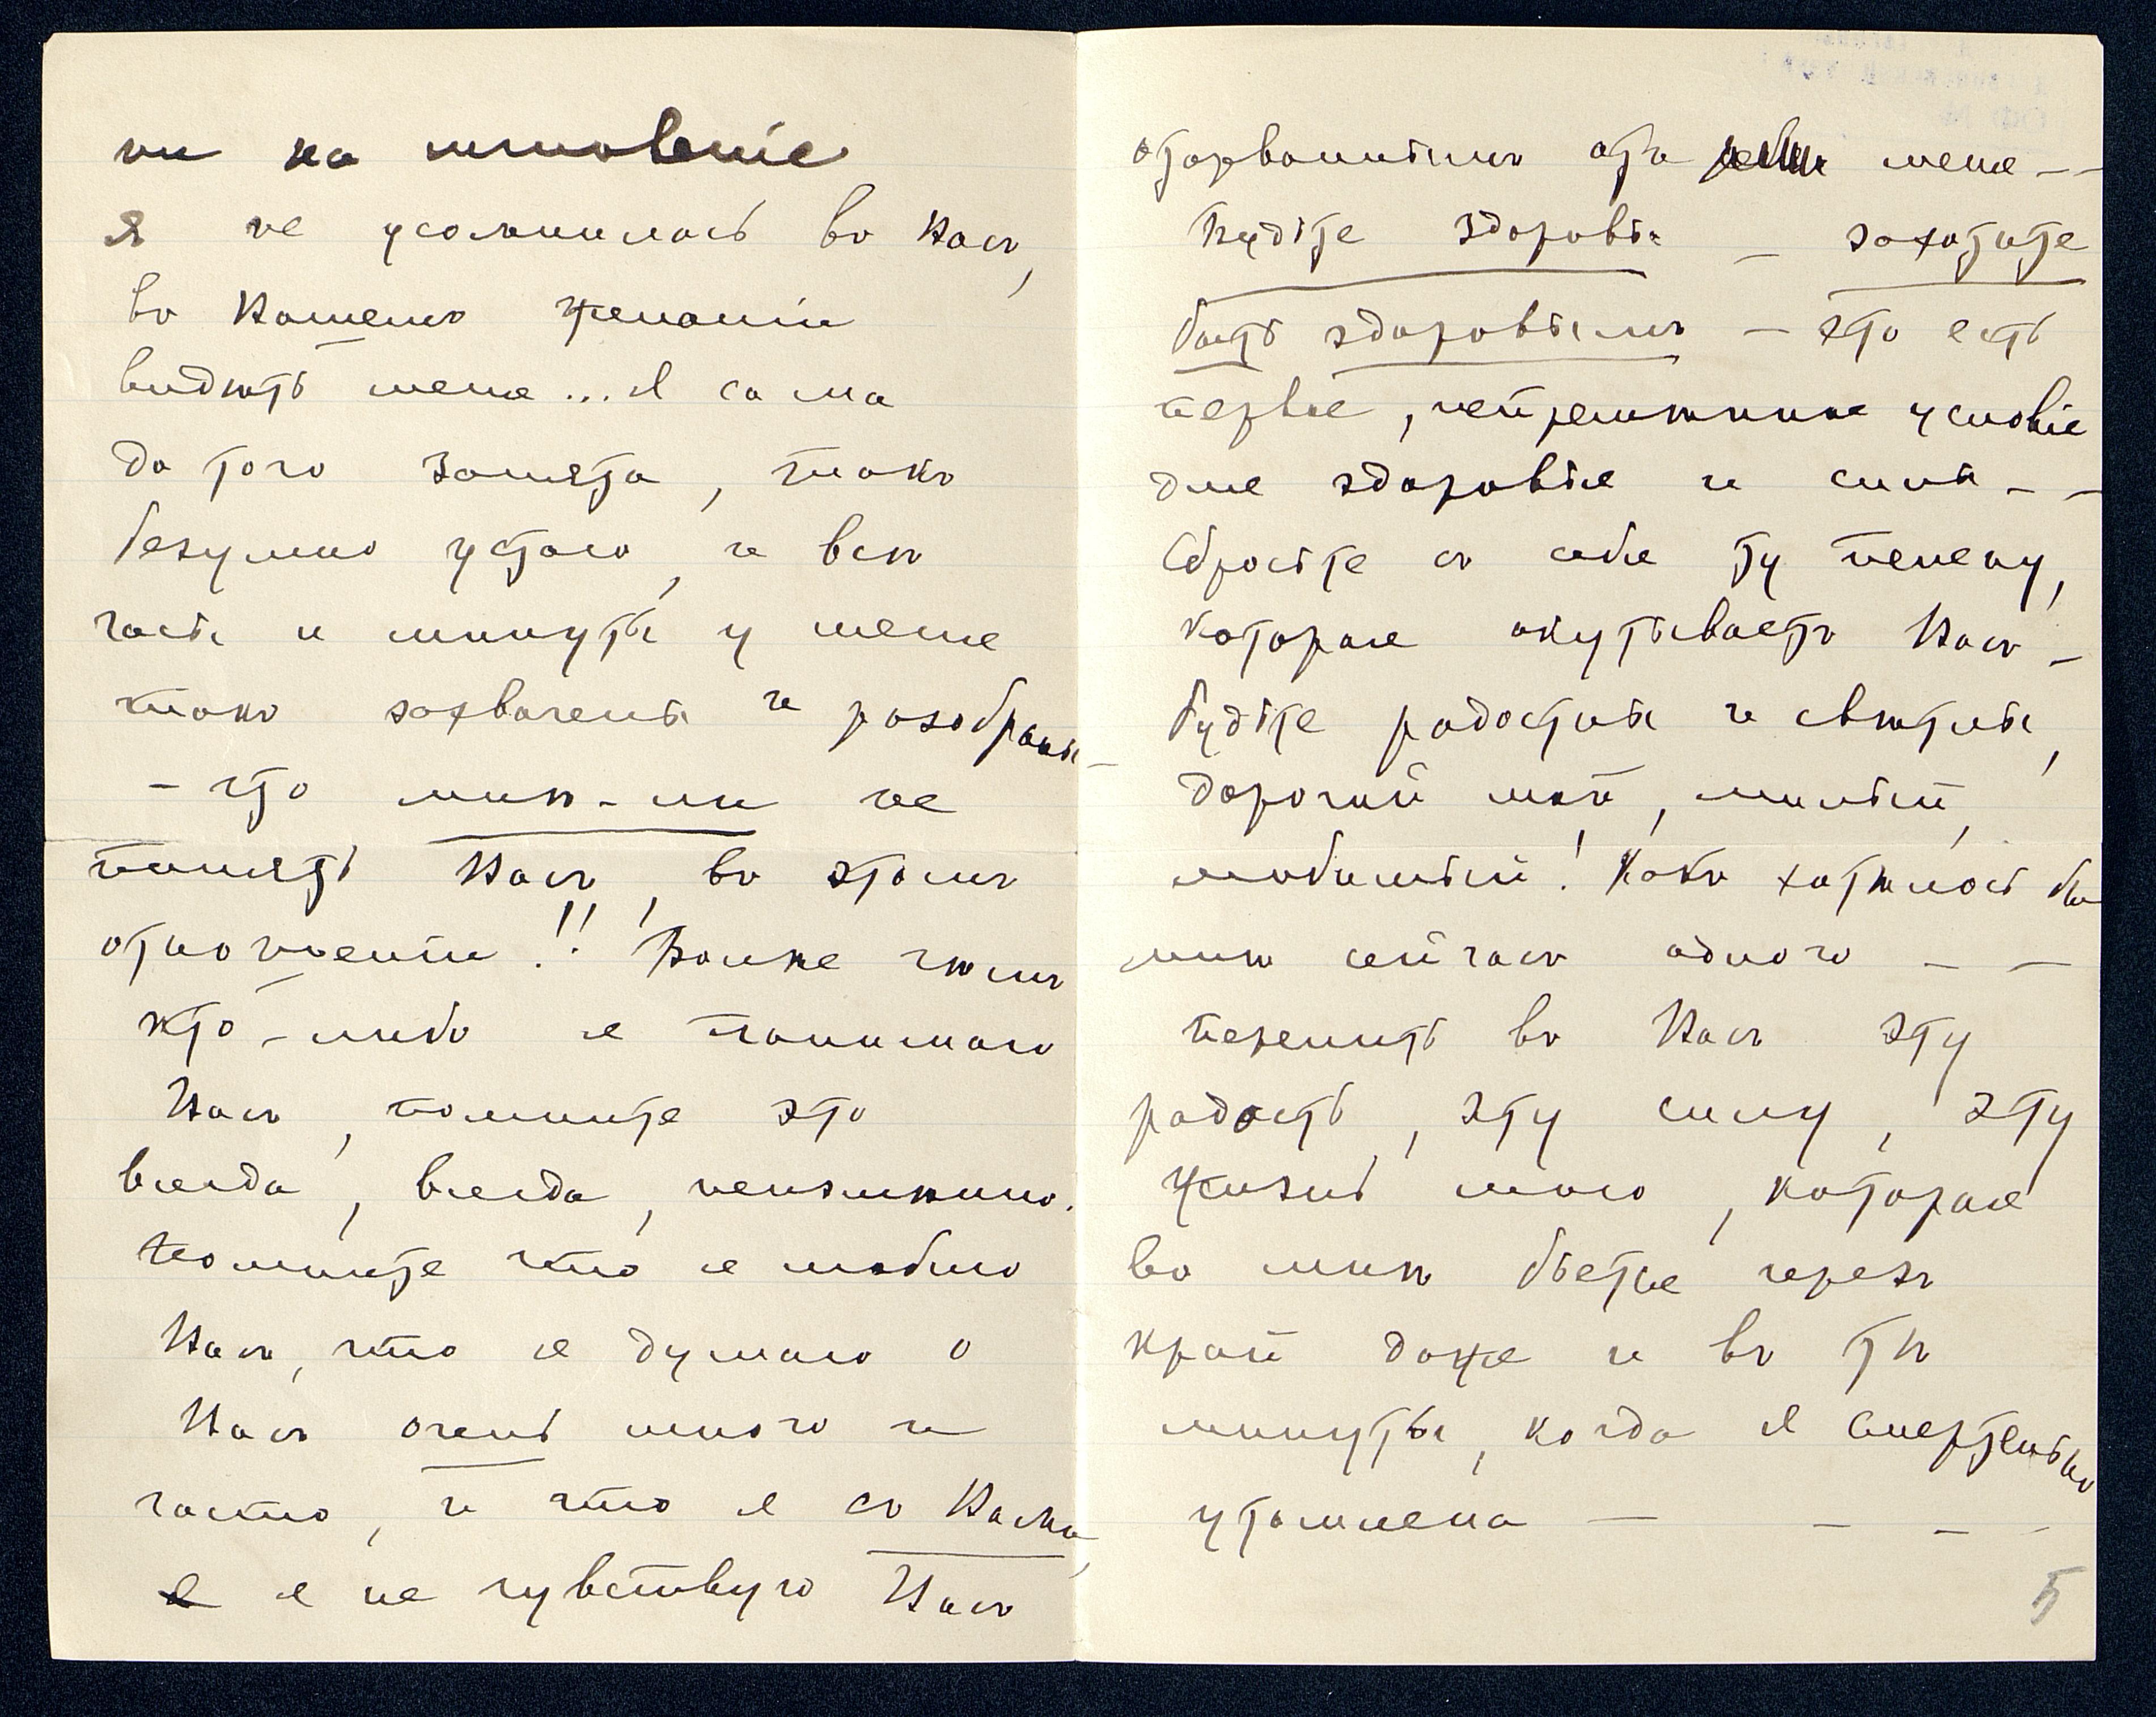 ни на мгновеніе
я не усомнилась въ Васъ,
въ Вашемъ желаніи
видѣть меня... Я сама
до того занята, такъ
безумно устаю, и всѣ
часы и минуты у меня
такъ захвачены и разобраны
– что мнѣ-ли не
понять Васъ, въ этомъ
отношеніи!! Болѣе чѣмъ
кто-либо я понимаю
Васъ, помните это
всегда, всегда, неизмѣнно.
Помните что я люблю
Васъ, что я думаю о
Васъ очень много и
часто, и что я съ Вами,
я не чувствую Васъ
оторваннымъ отъ меня – –
Будьте здоровы – захотите
быть здоровымъ – это есть
первое, непремѣнное условіе
для здоровья и силы – –
Сбросьте съ себя ту пелену,
которая окутываетъ Васъ –
будьте радостны и свѣтлы,
дорогой мой, милый,
любимый! Какъ хотѣлось бы
мнѣ сейчасъ одного – –
перелить въ Васъ эту
радость, эту силу, эту
жизнь мою, которая
во мнѣ бьется черезъ
край даже и въ тѣ
минуты, когда я смертельно
утомлена – – – –
5